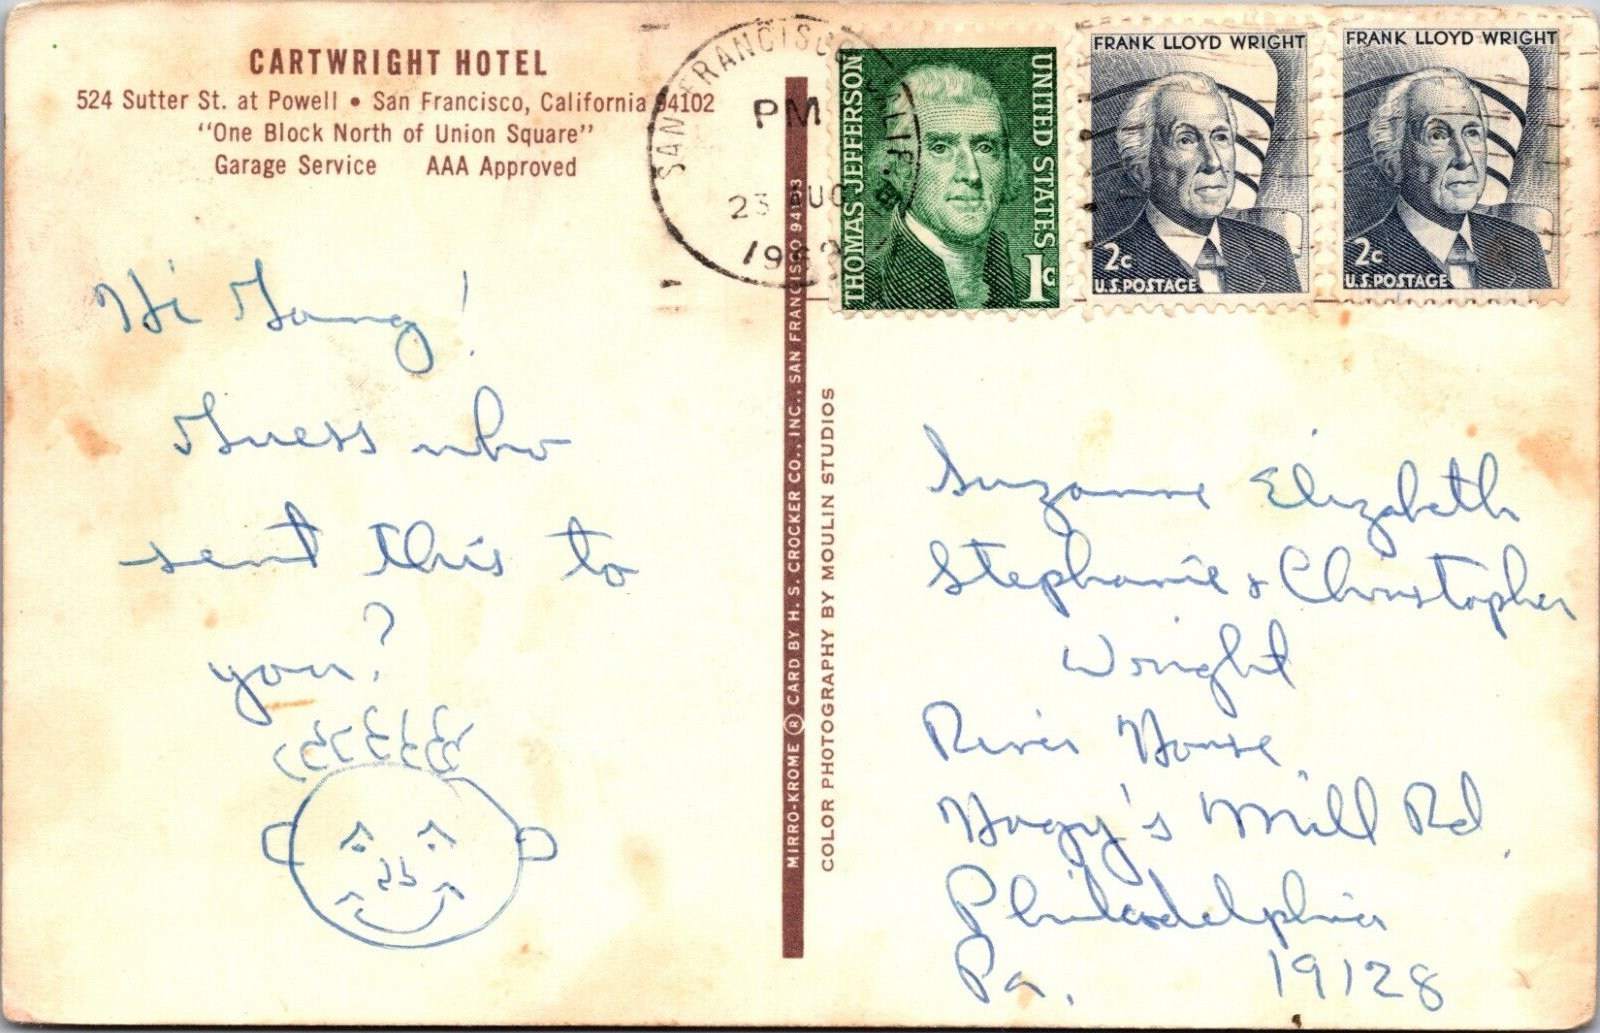 CARTWRIGHT HOTEL
524 Sutter St. at Powell • San Francisco, California 94102
"One Block North of Union Square"
Garage Service AAA Approved
SAN FRANCISCO CALIF.
PM
23 AUG
THOMAS JEFFERSON
UNITED STATES
1c
FRANK LLOYD WRIGHT
2c
U.S. POSTAGE
FRANK LLOYD WRIGHT
2c
U.S. POSTAGE
Hi Gang!
Guess who
sent this to
you?
MIRRO-KROME ® CARD BY H. S. CROCKER CO., INC., SAN FRANCISCO
COLOR PHOTOGRAPHY BY MOULIN STUDIOS
Suzanne Elizabeth
Stephanie & Christopher
Wright
River House
Hagy's Mill Rd.
Philadelphia
Pa. 19128